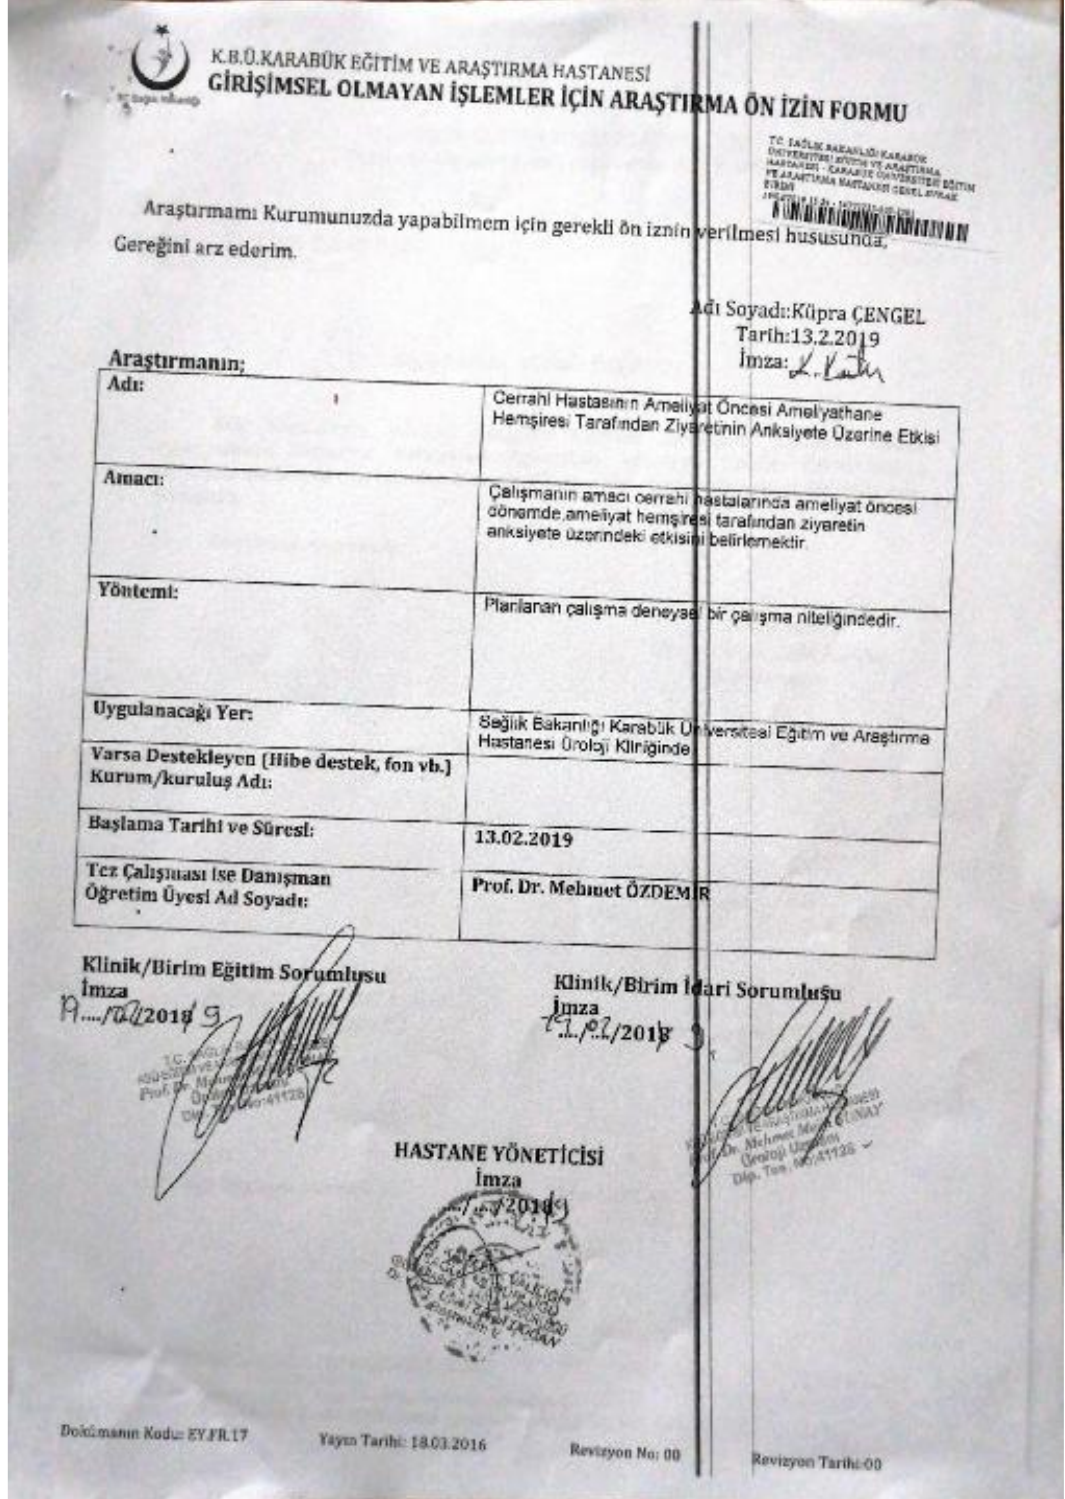 K.B.Ü.KARABÜK EĞİTİM VE ARAŞTIRMA HASTANESİ
GİRİŞİMSEL OLMAYAN İŞLEMLER İÇİN ARAŞTIRMA ÖN İZİN FORMU
T.C. SAĞLIK BAKANLIĞI KARABÜK
ÜNİVERSİTESİ EĞİTİM VE ARAŞTIRMA
HASTANESİ - KARABÜK ÜNİVERSİTESİ EĞİTİM
VE ARAŞTIRMA HASTANESİ GENEL EVRAK
BİRİMİ
Araştırmamı Kurumunuzda yapabilmem için gerekli ön iznin verilmesi hususunda,
Gereğini arz ederim.
Adı Soyadı:Küpra ÇENGEL
Tarih:13.2.2019
İmza:
Araştırmanın;
Adı:
Cerrahi Hastasının Ameliyat Öncesi Ameliyathane
Hemşiresi Tarafından Ziyaretinin Anksiyete Üzerine Etkisi
Amacı:
Çalışmanın amacı cerrahi hastalarında ameliyat öncesi
dönemde,ameliyat hemşiresi tarafından ziyaretin
anksiyete üzerindeki etkisini belirlemektir.
Yöntemi:
Planlanan çalışma deneysel bir çalışma niteliğindedir.
Uygulanacağı Yer:
Sağlık Bakanlığı Karabük Üniversitesi Eğitim ve Araştırma
Hastanesi Üroloji Kliniğinde
Varsa Destekleyen (Hibe destek, fon vb.)
Kurum/kuruluş Adı:
Başlama Tarihi ve Süresi:
13.02.2019
Tez Çalışması İse Danışman
Öğretim Üyesi Ad Soyadı:
Prof. Dr. Mehmet ÖZDEMİR
Klinik/Birim Eğitim Sorumlusu
İmza
19..../02/2018 9
Klinik/Birim İdari Sorumlusu
İmza
19/02/2018 9
T.C. SAĞLIK
Prof. Dr.
Prof. Dr. Mehmet
Üroloji Uzmanı
Dip. Tes. No:41128
HASTANE YÖNETİCİSİ
İmza
..../..../2018 9
Dokümanın Kodu: EY.FR.17
Yayın Tarihi: 18.03.2016
Revizyon No: 00
Revizyon Tarihi:00